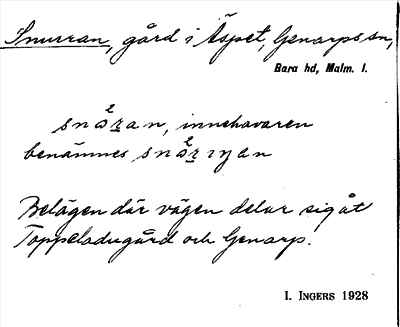 Snurran, gård i Äspet, Genarps sn,
Bara hd, Malm. l.
snåran, innehavaren
benämnes snårɩŋan
Belägen där vägen delar sig åt
Toppeladugård och Genarp.
I. INGERS 1928